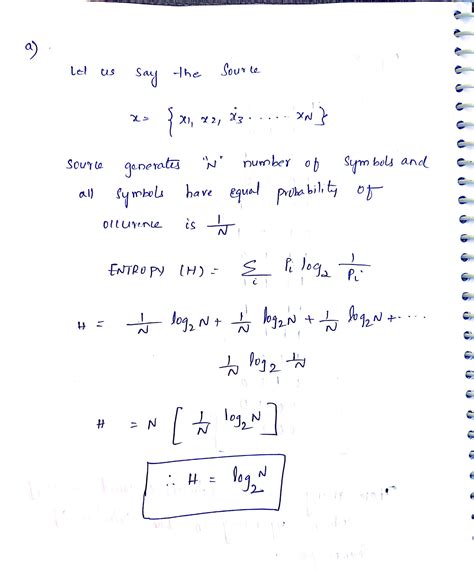 a)
Let us say the Source
x = { x1, x2, x3 ...... xN }
Source generates "N" number of symbols and
all symbols have equal probability of
ollurence is 1/N
ENTROPY (H) = Σ_i Pi log2 1/Pi
H = 1/N log2 N + 1/N log2 N + 1/N log2 N + ....
1/N log2 1/N
H = N [ 1/N log2 N ]
∴ H = log2 N